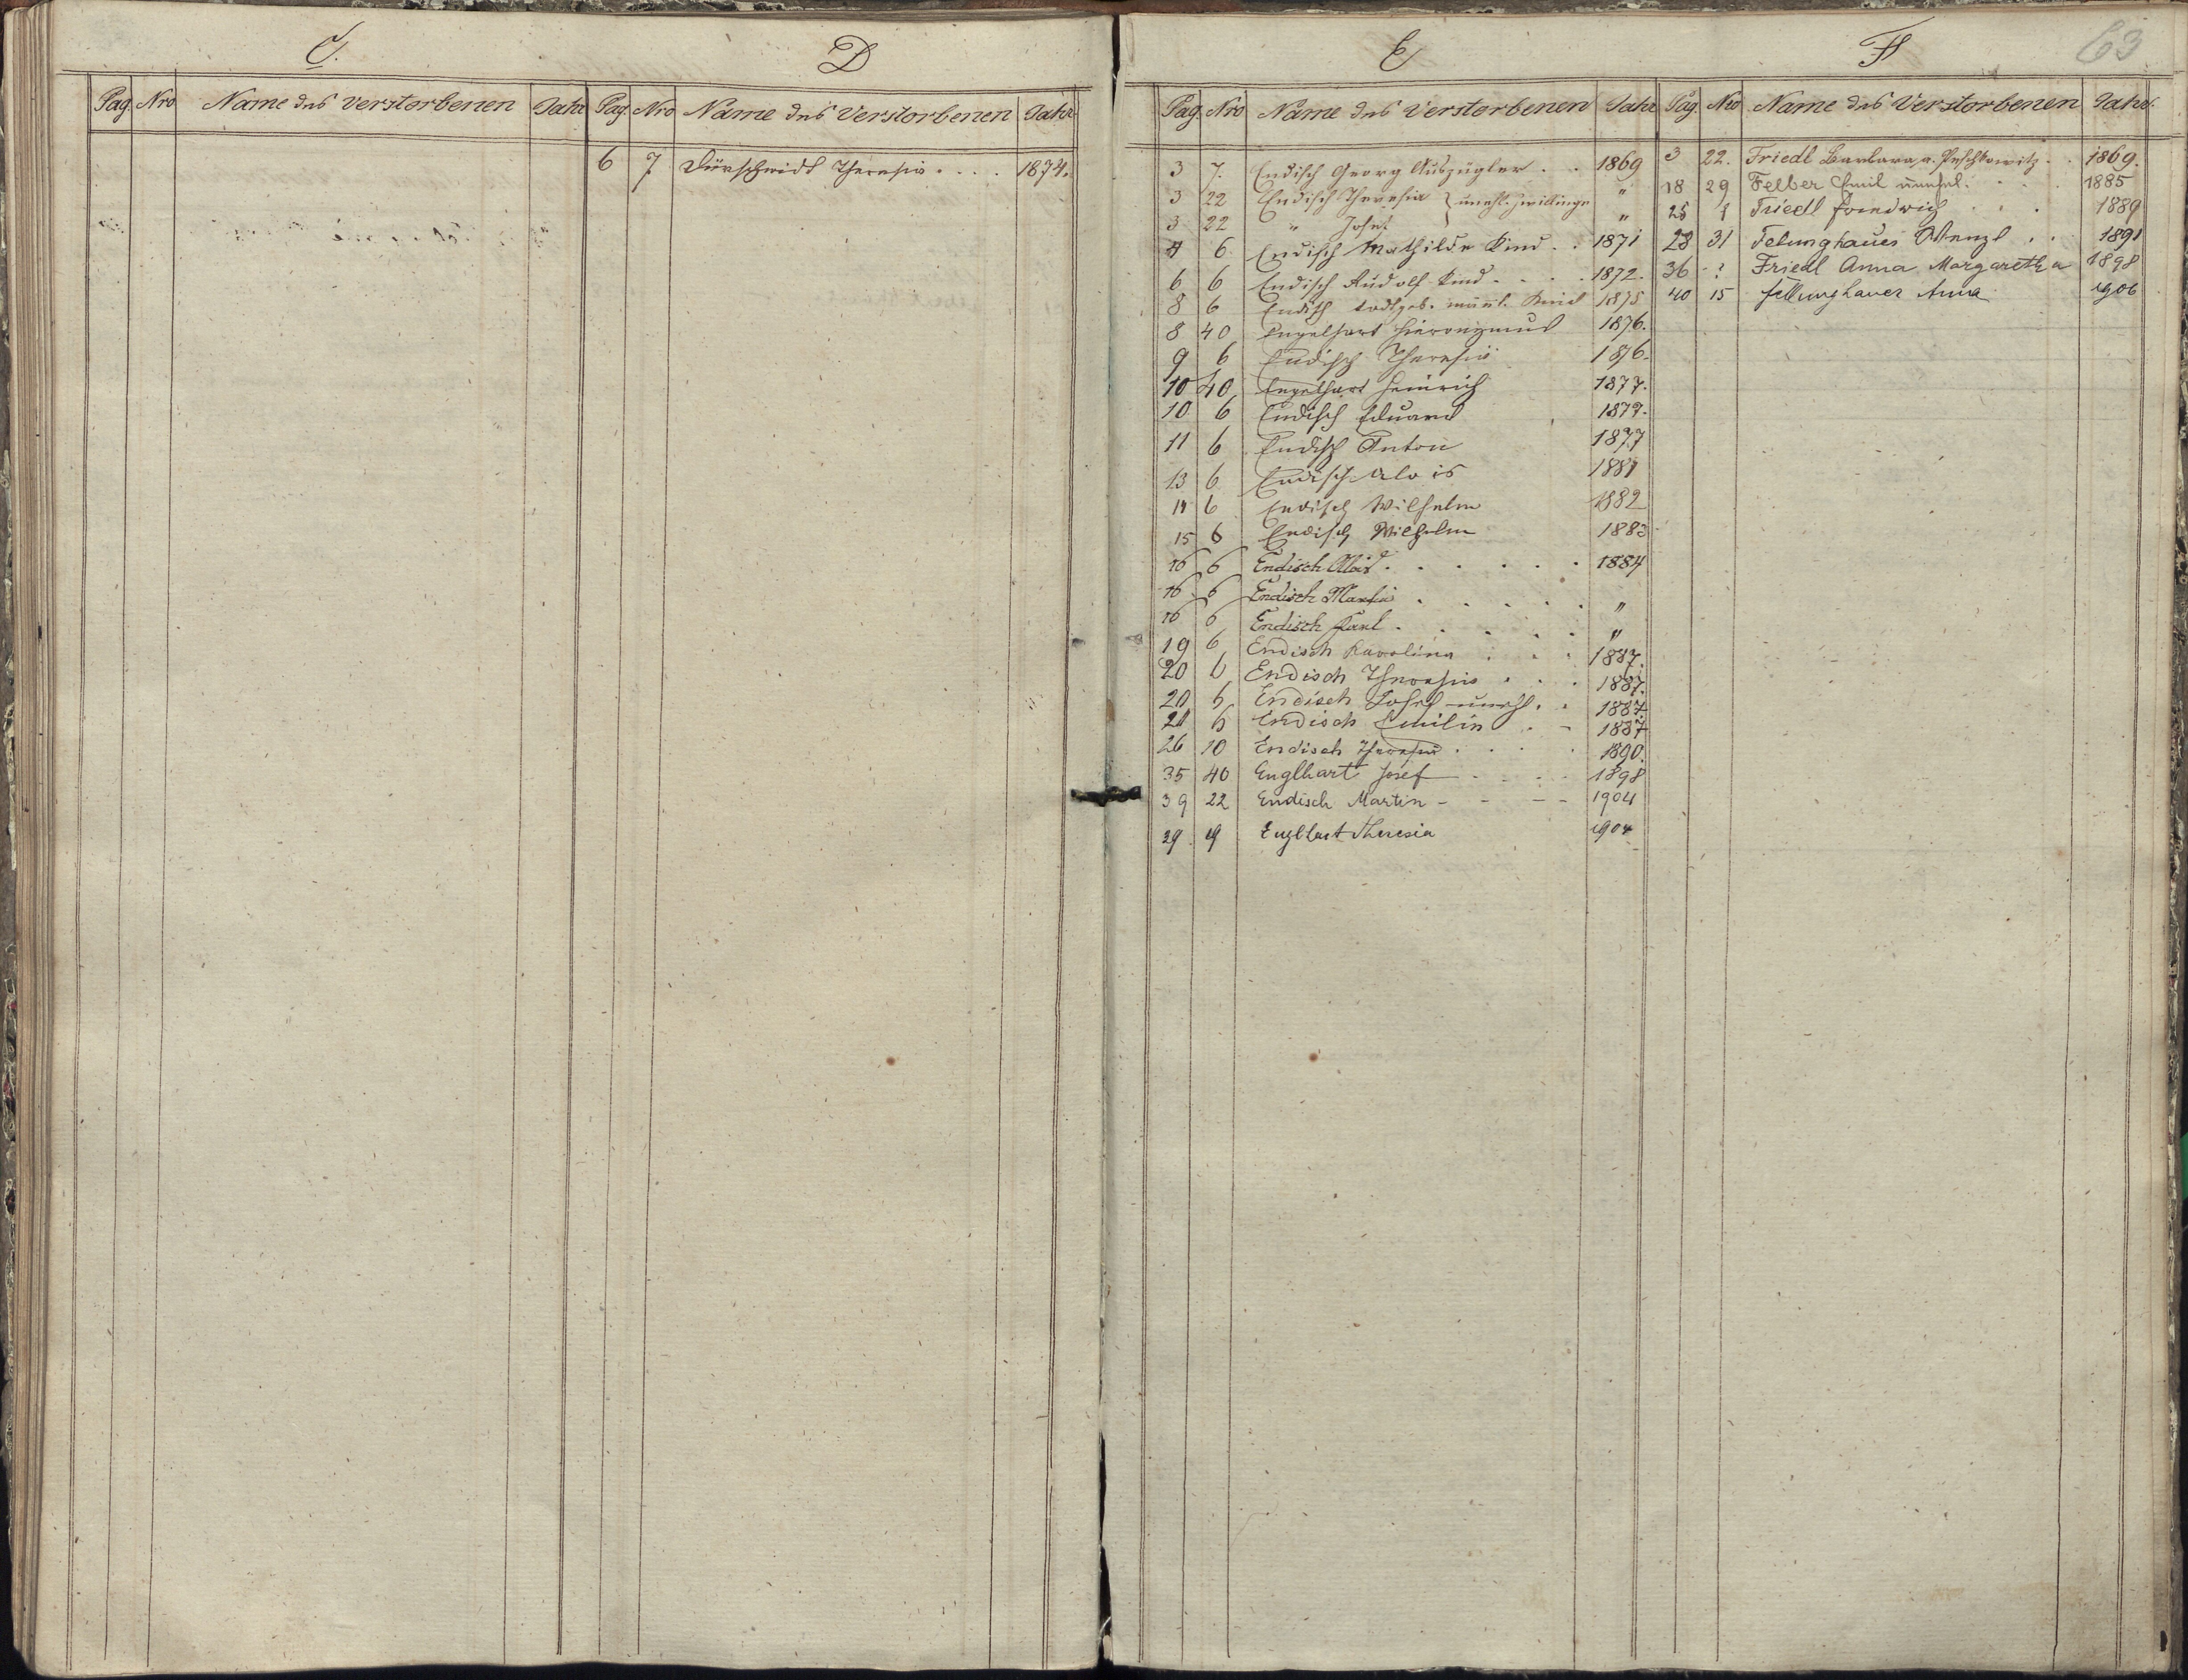 C.
Pag. Nro Name des Verstorbenen Jahr
D
Pag. Nro Name des Verstorbenen Jahr
6 7 Dürschmidt Theresia . . . . 1874.
E
Pag. Nro Name des Verstorbenen Jahr
3 7. Endisch Georg Auszügler . . 1869
3 22 Endisch Theresia } unehl. Zwillinge "
3 22 " Josef "
4 6 Endisch Mathilde Kind . . 1871
6 6 Endisch Rudolf Kind . . . . 1872.
8 6 Endisch todtgeb. männl. Kind 1875
8 40 Engelhart Hieronymus 1876.
9 6 Endisch Theresia 1876.
10 40 Engelhart Heinrich 1877.
10 6 Endisch Eduard 1877.
11 6 Endisch Anton 1877
13 6 Endisch Alois 1881
14 6 Endisch Wilhelm 1882
15 6 Endisch Wilhelm 1883
16 6 Endisch Alois . . . . . . 1884
16 6 Endisch . . . . . "
16 6 Endisch Karl . . . . . "
19 6 Endisch Karolina . . . 1887.
20 6 Endisch Theresia . . . 1887.
20 6 Endisch Josef unehl. . 1887
21 6 Endisch Emilia . - 1887
26 10 Endisch Theresia . . . . 1890.
35 40 Englhart Josef - . - . 1898
39 22 Endisch Martin - - - - 1904
39 19 Englhart Theresia 1904
63
F
Pag. Nro Name des Verstorbenen Jahr.
3 22. Friedl Barbara a. Peschkowitz . . 1869.
18 29 Felber Emil unehel. . . . 1885
25 1 Friedl . . . 1889
28 31 Felunghauer Wenzl . . 1891
36 - ? Friedl Anna Margaretha 1898
40 15 Fellunghauer Anna 1906